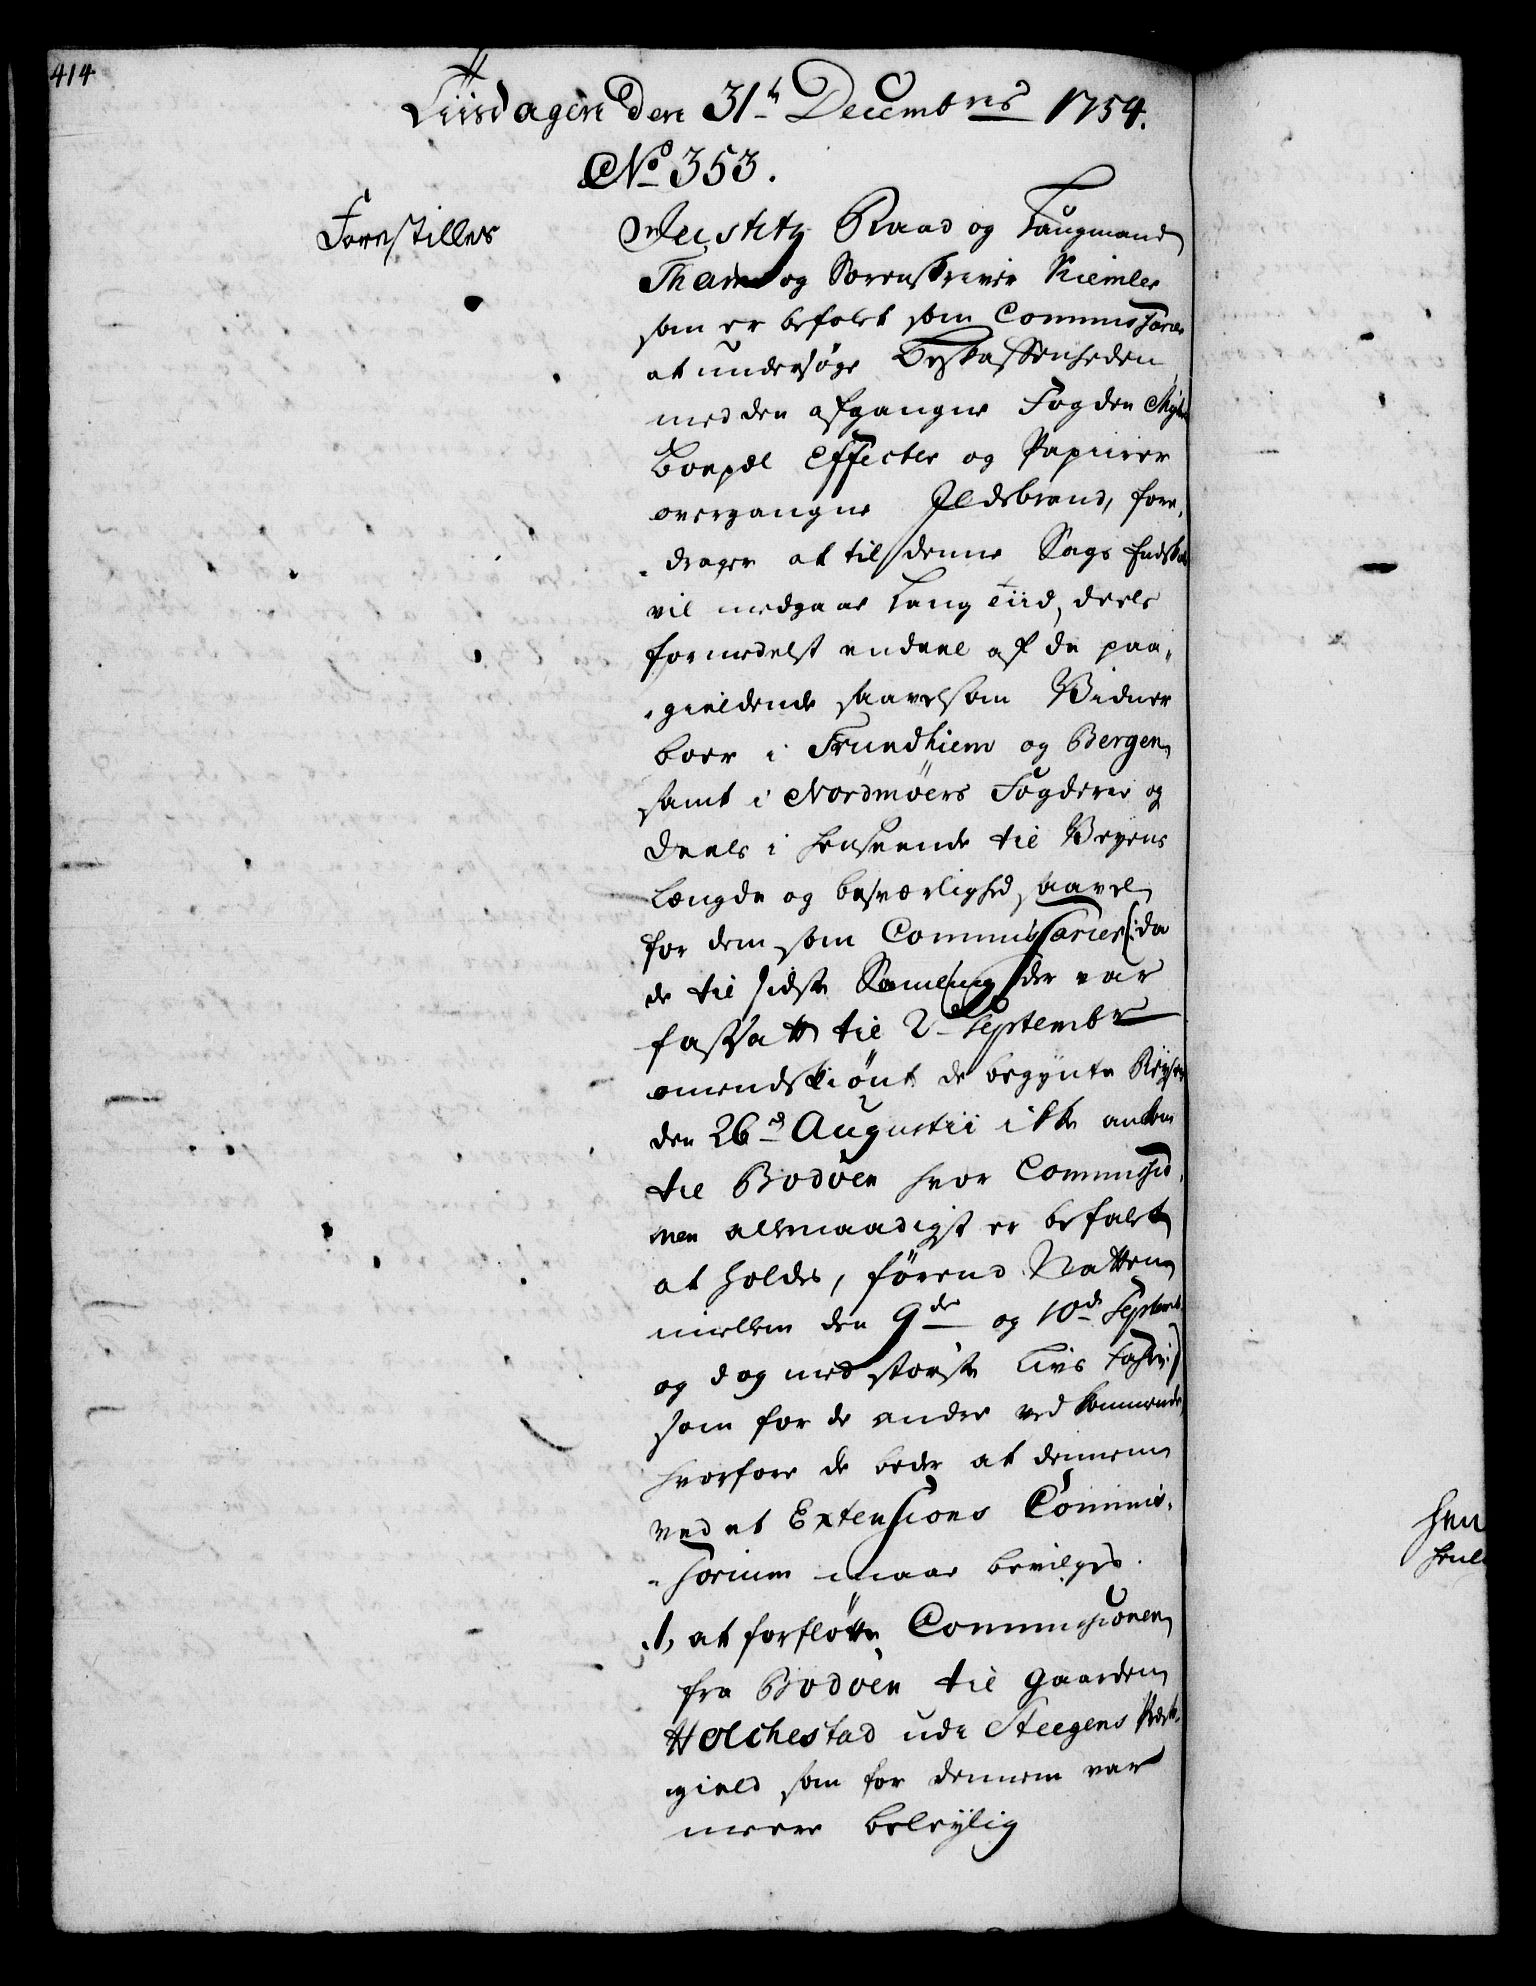 414
Tiisdagen den 31te Decembris 1754.
No 353.
Forestilles
Justitz Raad og Laugmand
Tham og Sorenskriver Kiemler
som er befalet som Commissarier
at undersøge Beskaffenheden
med den afgangne Fogden
Boepæl Effecter og Papiirer
overgangne Ildebrand, fore-
drager at til denne Sags Endskab
vil medgaae lang Tiid, deels
formedelst endeel af de paa-
gieldende saavelsom Vidner
boer i Trundhiem og Bergen
samt i Nordmøers Fogderie og
deels i henseende til Veyens
længde og besværlighed, saavel
for dem som Commissarier (: da
de til sidste Samling der var
fastsatt til 2de Septembr
omendskiønt de begynte Reysen
den 26de Augustii ikke ankom
til Bodöen hvor Commissio-
nen allernaadigst er befalet
at holdes, førend Natten
mellem den 9de og 10de Septemb.
og dog med største Livs Fahre :)
som for de andre vedkommende,
hvorfore de beder at dennem
ved et Extensions Commis-
sorium maae bevilges.
1, at forflötte Commissionen
fra Bodöen til Gaarden
Holchestad udi Steegens Præste-
gield som for dennem var
meere beleylig